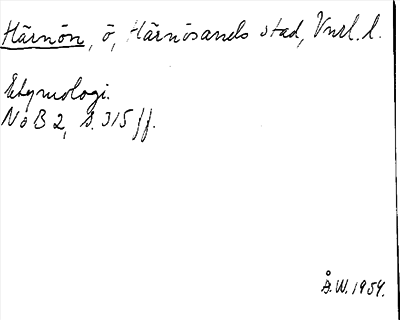 Härnön, ö, Härnösands stad, Vnrl. l.
Etymologi.
NoB 2, s. 315 ff.
Å.W. 1954.